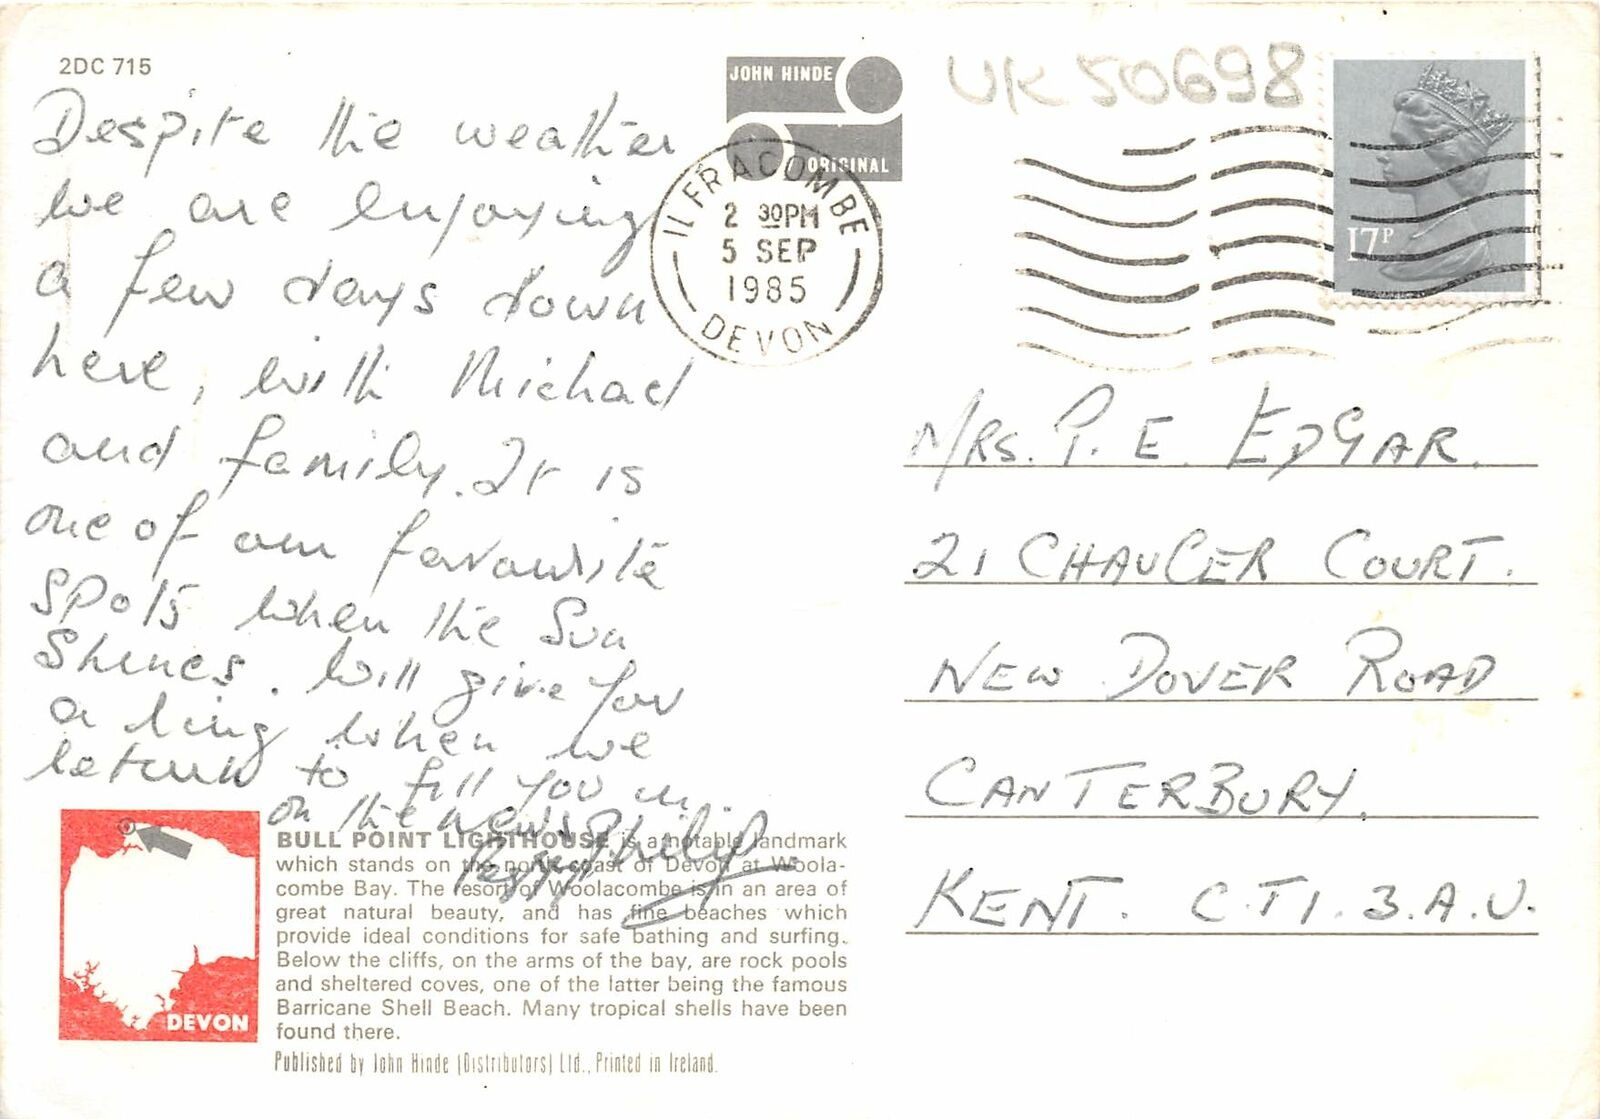 2DC 715
Despite the weather
we are enjoying
a few days down
here, with Michael
and family. It is
one of our favourite
spots when the Sun
Shines. Will give you
a ring when we
return to fill you in
on the news.
Peggy Philip
JOHN HINDE
ORIGINAL
UK 50698
ILFRACOMBE
2 30PM
5 SEP
1985
DEVON
17P
MRS. P. E. EDGAR.
21 CHAUCER COURT.
NEW DOVER ROAD
CANTERBURY.
KENT. C.T1. 3.A.U.
DEVON
BULL POINT LIGHTHOUSE is a notable landmark
which stands on the north coast of Devon at Woola-
combe Bay. The resort of Woolacombe is in an area of
great natural beauty, and has fine beaches which
provide ideal conditions for safe bathing and surfing.
Below the cliffs, on the arms of the bay, are rock pools
and sheltered coves, one of the latter being the famous
Barricane Shell Beach. Many tropical shells have been
found there.
Published by John Hinde (Distributors) Ltd., Printed in Ireland.